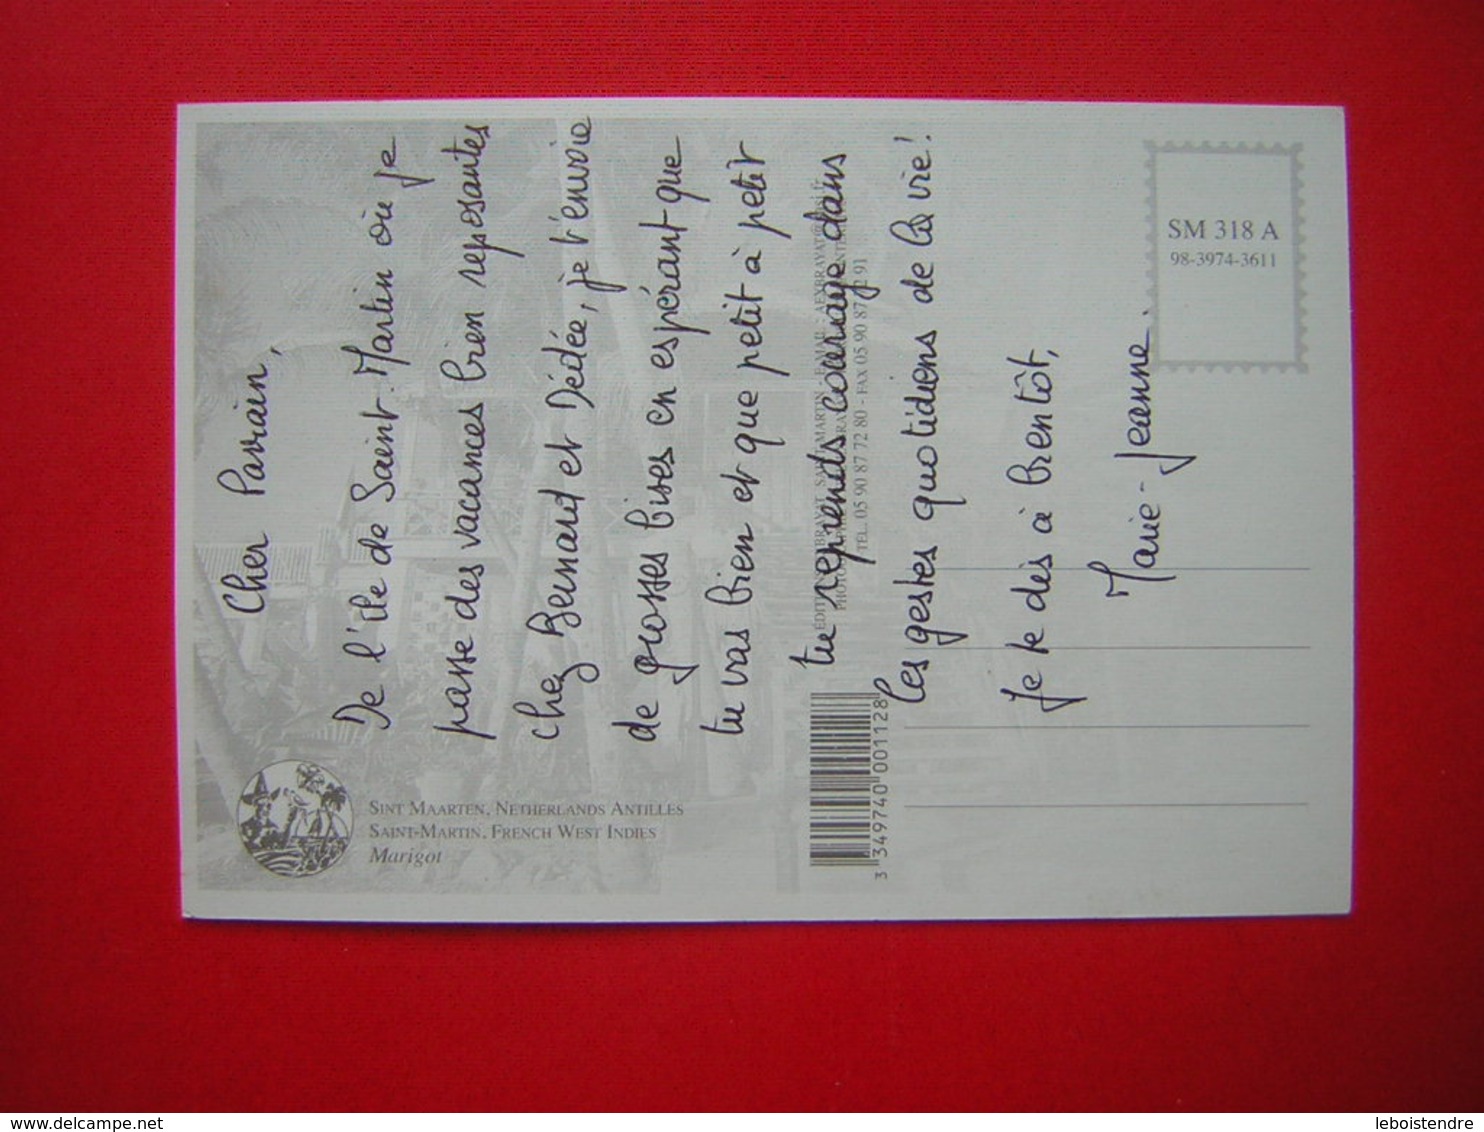 Cher Parrain,
De l'île de Saint-Martin où je
passe des vacances bien reposantes
chez Bernard et Dédée, je t'envoie
de grosses bises en espérant que
tu vas bien et que petit à petit
tu reprends courage dans
les gestes quotidiens de la vie!
Je te dis à bientôt,
Marie-Jeanne.
SINT MAARTEN, NETHERLANDS ANTILLES
SAINT-MARTIN, FRENCH WEST INDIES
Marigot
3 349740 001128
SAINT MARTIN - E-MAIL :
TÉL. 05 90 87 72 80 - FAX 05 90 87
SM 318 A
98-3974-3611
www.delcampe.net
leboistendre